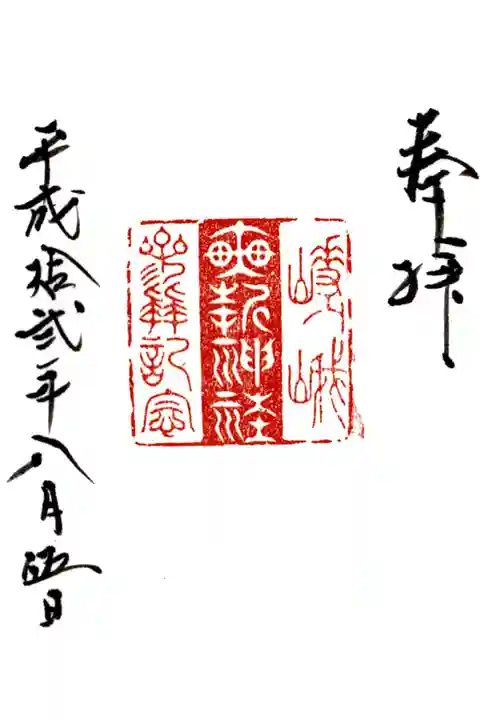 奉拝
嵯峨
車折神社
参拝記念
平成拾弐年八月伍日